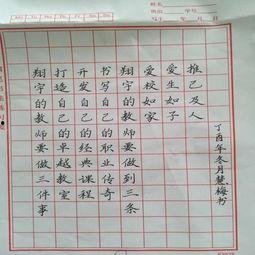 姓名
班级 学号
年 月 日
翔宇的教师要做三件事
打造自己的卓越教室
开发自己的经典课程
书写自己的职业传奇
翔宇的教师要做到三条
爱校如家
爱生如子
推己及人
丁酉年冬月慧梅书